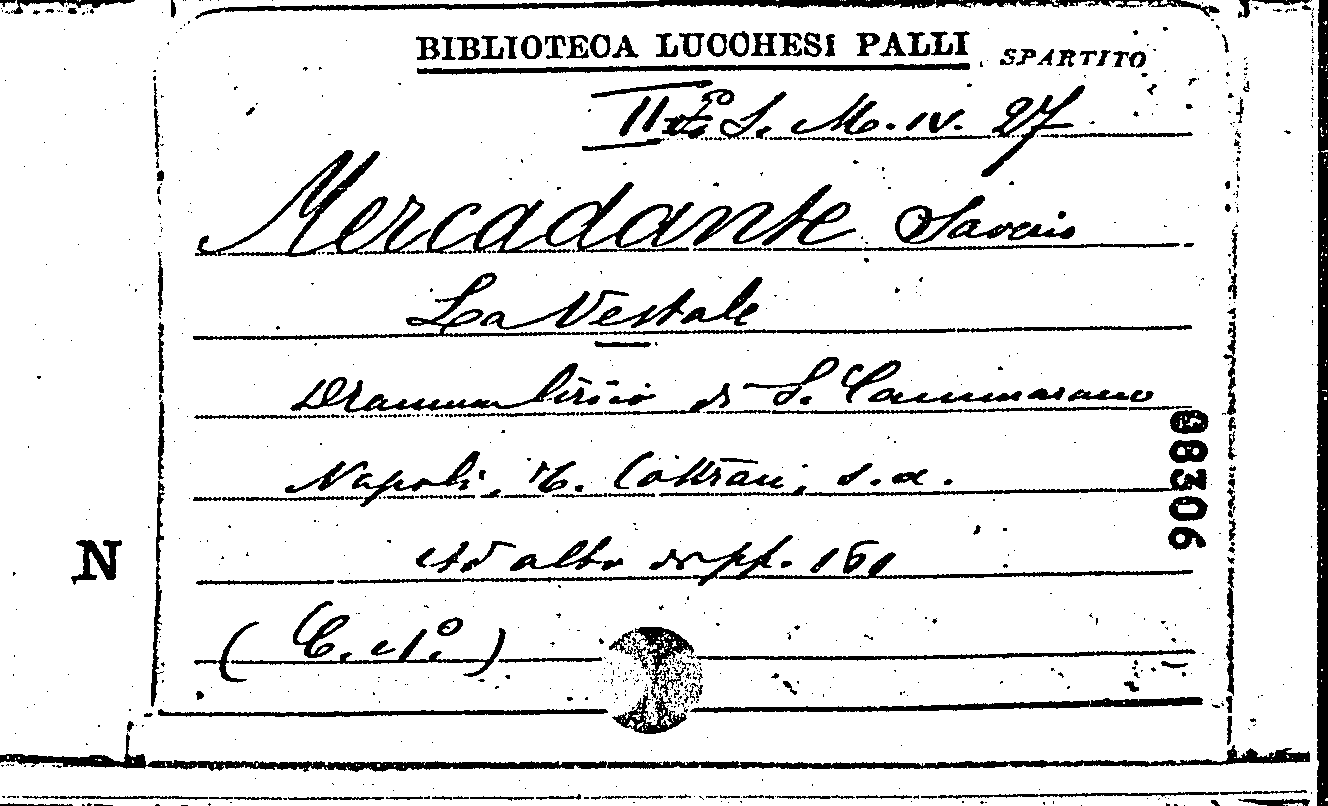 BIBLIOTECA LUCCHESI PALLI SPARTITO
II S. M. IV. 27
Mercadante Saverio
La Vestale
Dramma lirico di S. Cammarano
Napoli, Cottrau, s.d.
alto pp. 161
88306
N
(C. 1°)